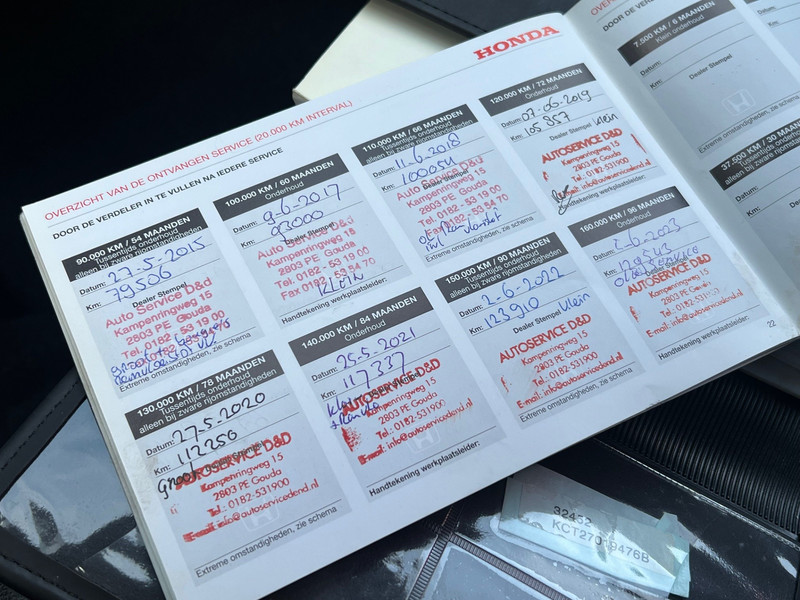 HONDA
OVERZICHT VAN DE ONTVANGEN SERVICE (20.000 KM INTERVAL)
DOOR DE VERDELER IN TE VULLEN NA IEDERE SERVICE
90.000 KM / 54 MAANDEN
Tussentijds onderhoud
alleen bij zware rijomstandigheden
Datum: 27-5-2015
Km: 79506
Dealer Stempel
Auto Service D&U
Kampenringweg 15
2803 PE Gouda
Tel. 0182 - 53 19 00
Extreme omstandigheden, zie schema
100.000 KM / 60 MAANDEN
Onderhoud
Datum: 9-6-2017
Km: 93000
Dealer Stempel
Auto Service D&U
Kampenringweg 15
2803 PE Gouda
Tel. 0182 - 53 19 00
Fax 0182 - 53 54 70
KLEIN
Handtekening werkplaatsleider:
110.000 KM / 66 MAANDEN
Tussentijds onderhoud
alleen bij zware rijomstandigheden
Datum: 11-6-2018
Km:
Dealer Stempel
Auto Service D&U
Kampenringweg 15
2803 PE Gouda
Tel. 0182 - 53 19 00
Fax 0182 - 53 54 70
Extreme omstandigheden, zie schema
120.000 KM / 72 MAANDEN
Onderhoud
Datum: 07-06-2019
Km: 105 957
Dealer Stempel Klein
AUTOSERVICE D&D
Kampenringweg 15
2803 PE Gouda
Tel.: 0182-531900
E-mail: info@autoservicedend.nl
Handtekening werkplaatsleider:
130.000 KM / 78 MAANDEN
Tussentijds onderhoud
alleen bij zware rijomstandigheden
Datum: 27-5-2020
Km: 112256
Groot
AUTOSERVICE D&D
Kampenringweg 15
2803 PE Gouda
Tel.: 0182-531900
E-mail: info@autoservicedend.nl
Extreme omstandigheden, zie schema
140.000 KM / 84 MAANDEN
Onderhoud
Datum: 25-5-2021
Km: 117337
AUTOSERVICE D&D
Kampenringweg 15
2803 PE Gouda
Tel.: 0182-531900
E-mail: info@autoservicedend.nl
Handtekening werkplaatsleider:
150.000 KM / 90 MAANDEN
Tussentijds onderhoud
alleen bij zware rijomstandigheden
Datum: 2-6-2022
Km: 123910
Dealer Stempel Klein
AUTOSERVICE D&D
Kampenringweg 15
2803 PE Gouda
Tel.: 0182-531900
E-mail: info@autoservicedend.nl
Extreme omstandigheden, zie schema
160.000 KM / 96 MAANDEN
Onderhoud
Datum: 2-6-2023
Km:
AUTOSERVICE D&D
Kampenringweg 15
2803 PE Gouda
Tel.: 0182-531900
E-mail: info@autoservicedend.nl
Handtekening werkplaatsleider:
22
DOOR DE VER
7.500 KM / 6 MAANDEN
Klein onderhoud
Datum:
Km:
Dealer Stempel
Extreme omstandigheden
37.500 KM / 30 MA
Datum:
Km:
32452
KCT270-9476B